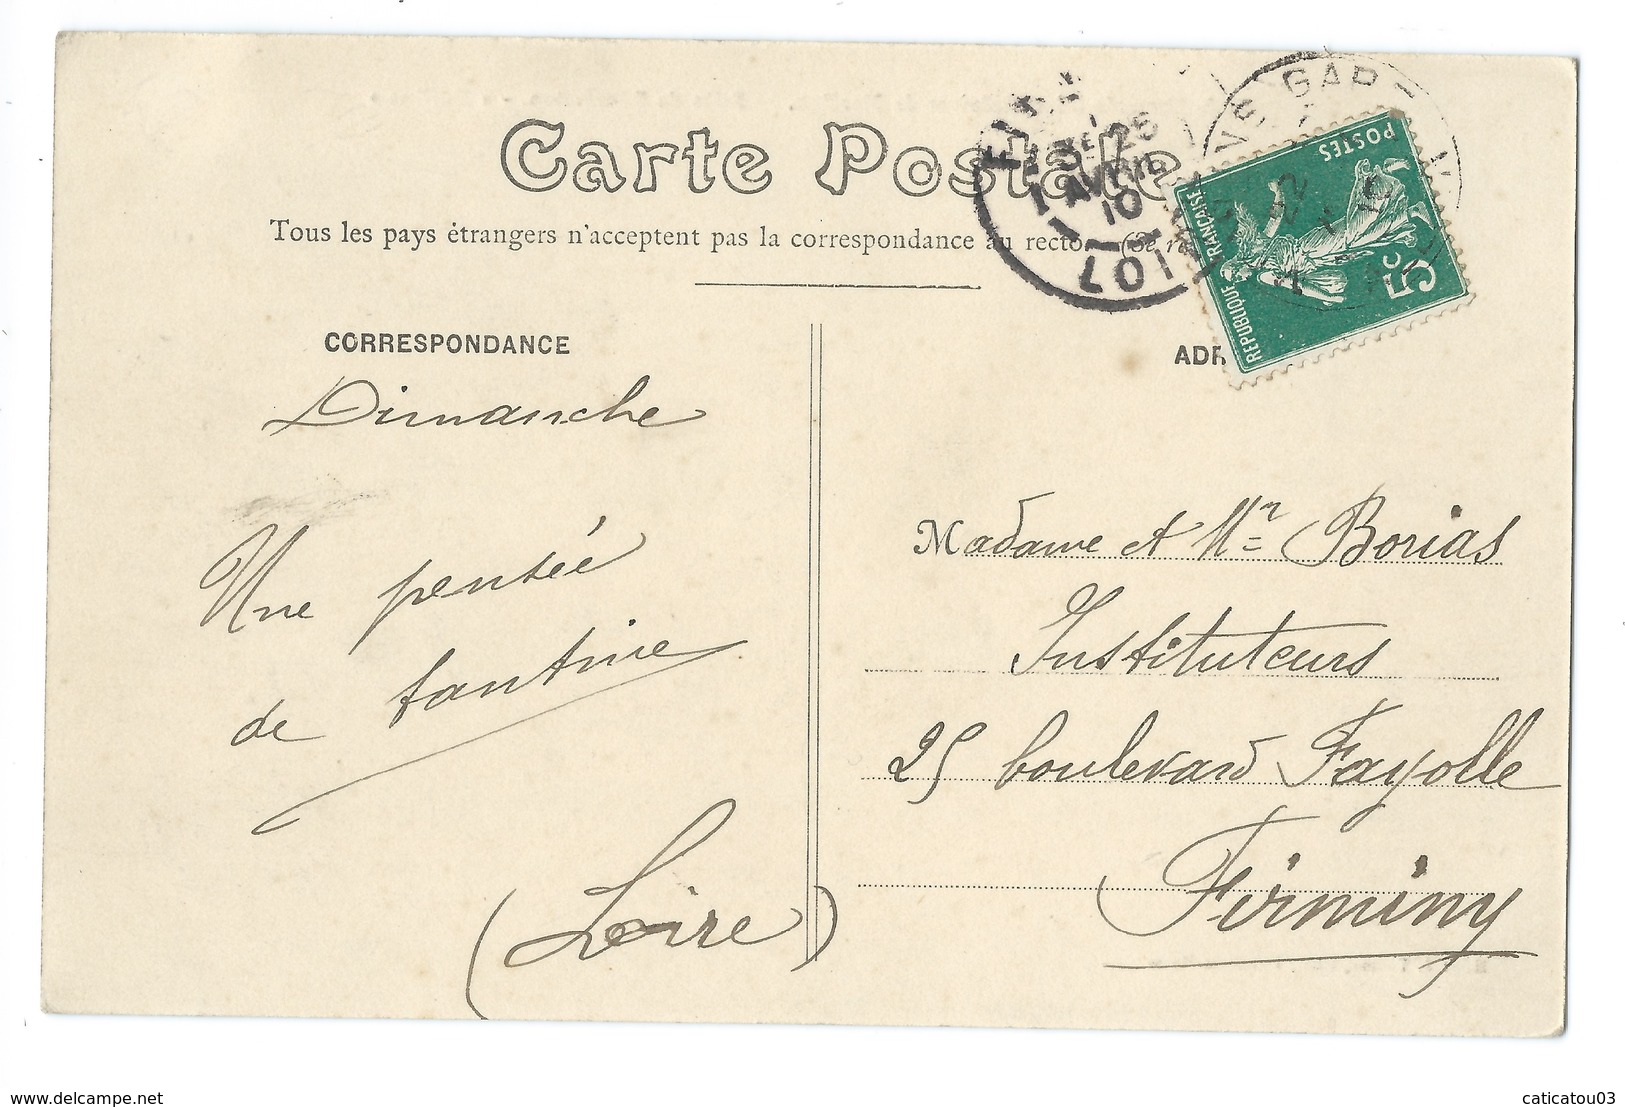 Carte Postale
Tous les pays étrangers n'acceptent pas la correspondance au recto. (Se re
CORRESPONDANCE
ADR
Dimanche
Une pensée
de tantine
(Loire)
Madame et Mr Borias
Instituteurs
25 boulevard Fayolle
Firminy
REPUBLIQUE FRANÇAISE
POSTES
5c
25
AVRIL
10
delcampe.net
caticatou03